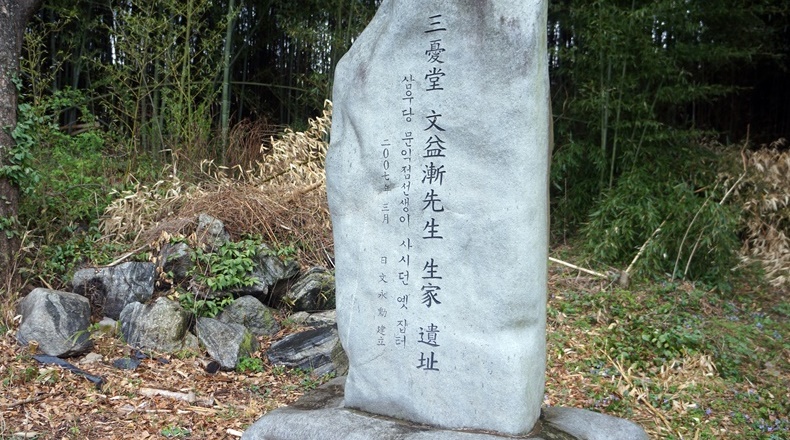 三憂堂 文益漸先生 生家 遺址
삼우당 문익점선생이 사시던 옛 집터
二00七年 三月 日 文永勳 建立